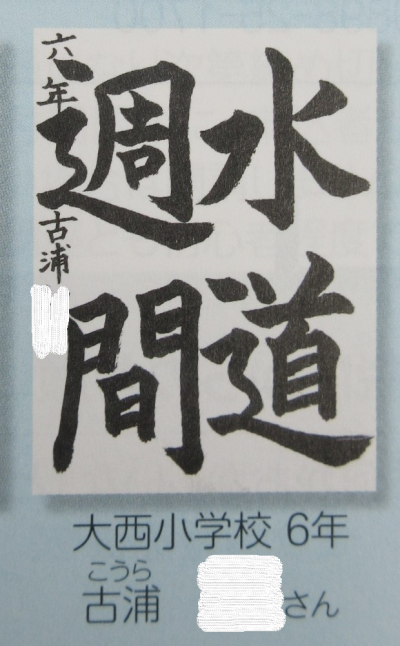 水道
週間
六年 古浦
大西小学校 6年
こうら
古浦 さん